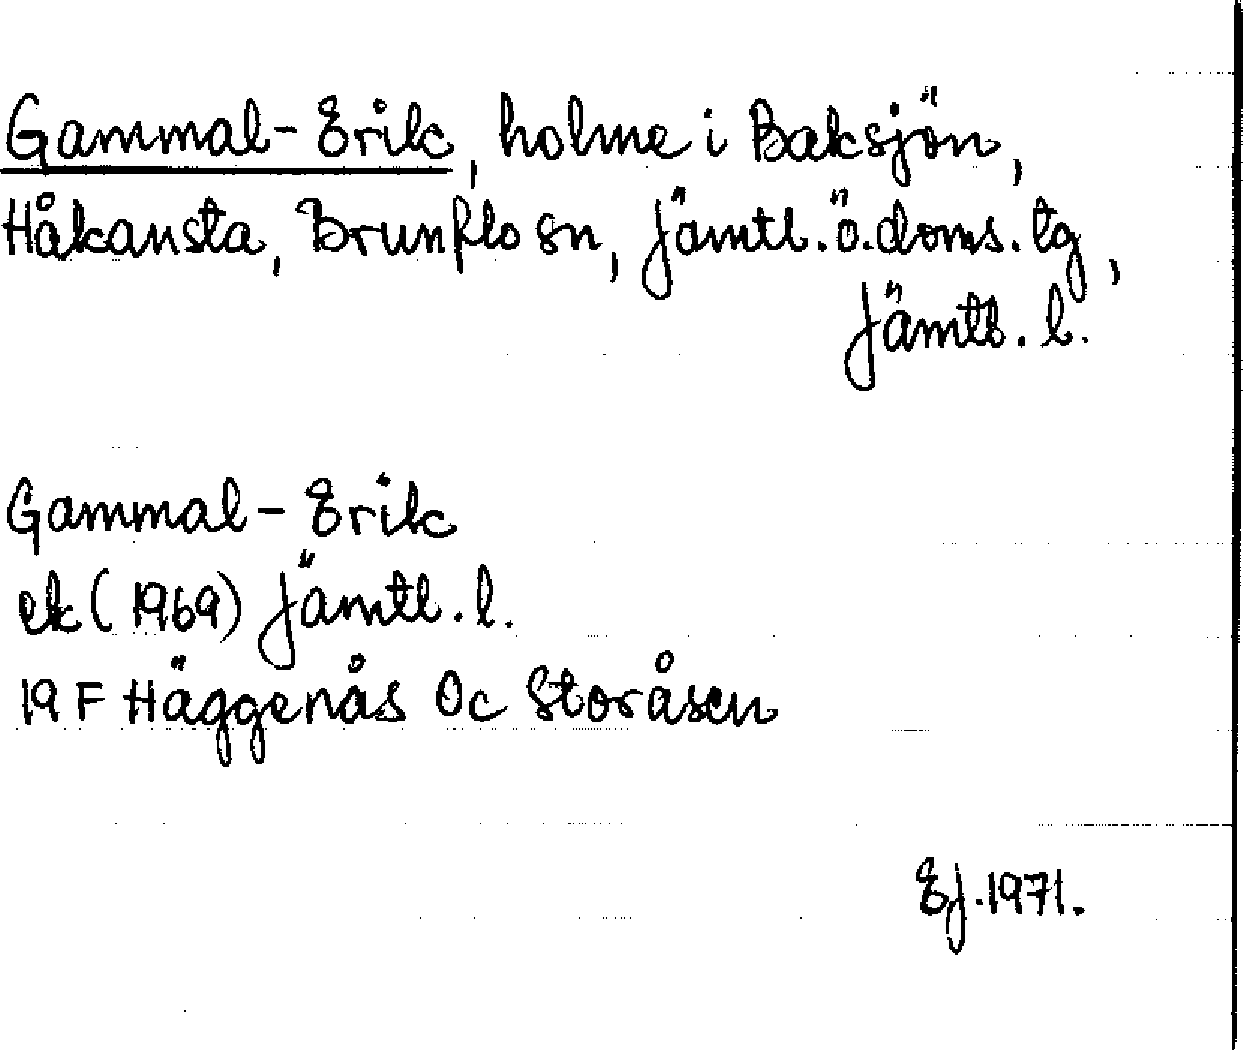 Gammal-Erik, holme i Baksjön,
Håkansta, Brunflo sn, Jämtl. ö. doms. tg,
Jämtl. l.
Gammal-Erik
ek (1969) Jämtl. l.
19 F Häggenås Oc Storåsen
EJ. 1971.